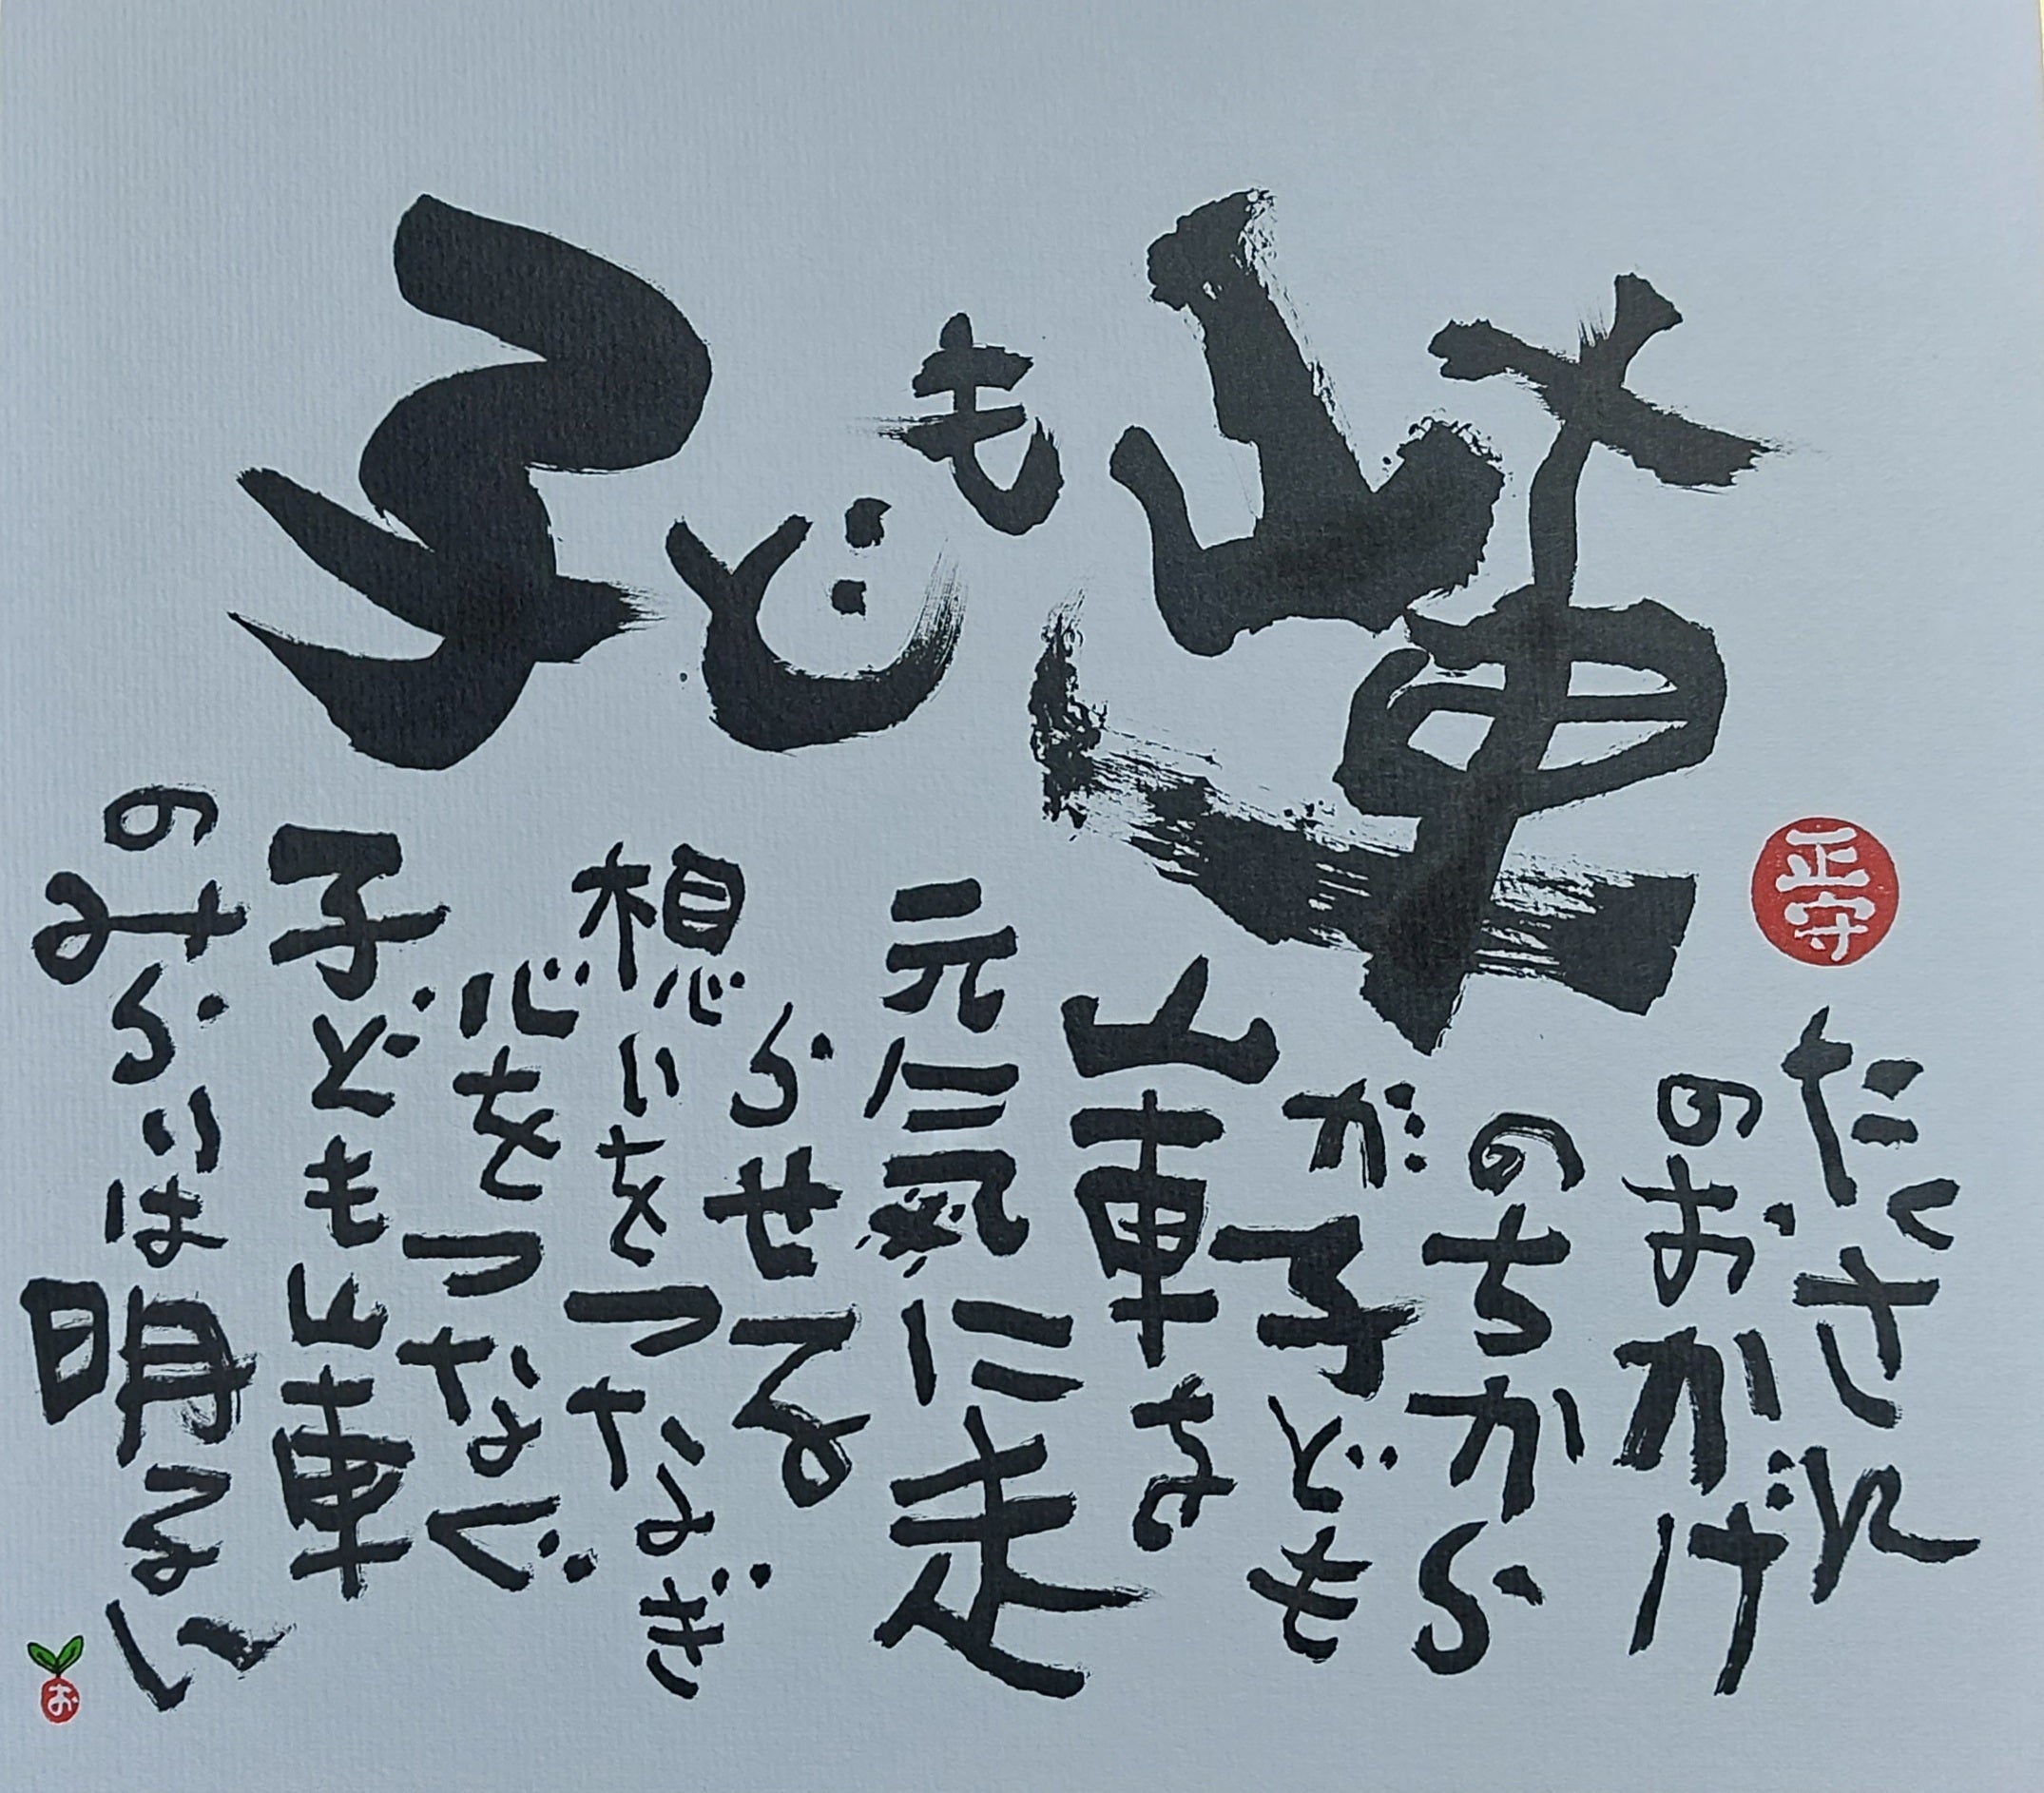 子ども山車
正守
たくさん
のおかげ
のちから
が子ども
山車を
元氣に走
らせる
想いをつなぎ
心をつなぐ
子ども山車
のみらいは明るい
お